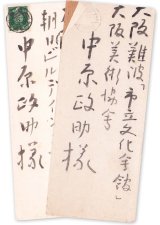 大阪難波「市立文化会館」
大阪美術協会
中原政助様
朝日ビルディング
中原政助様